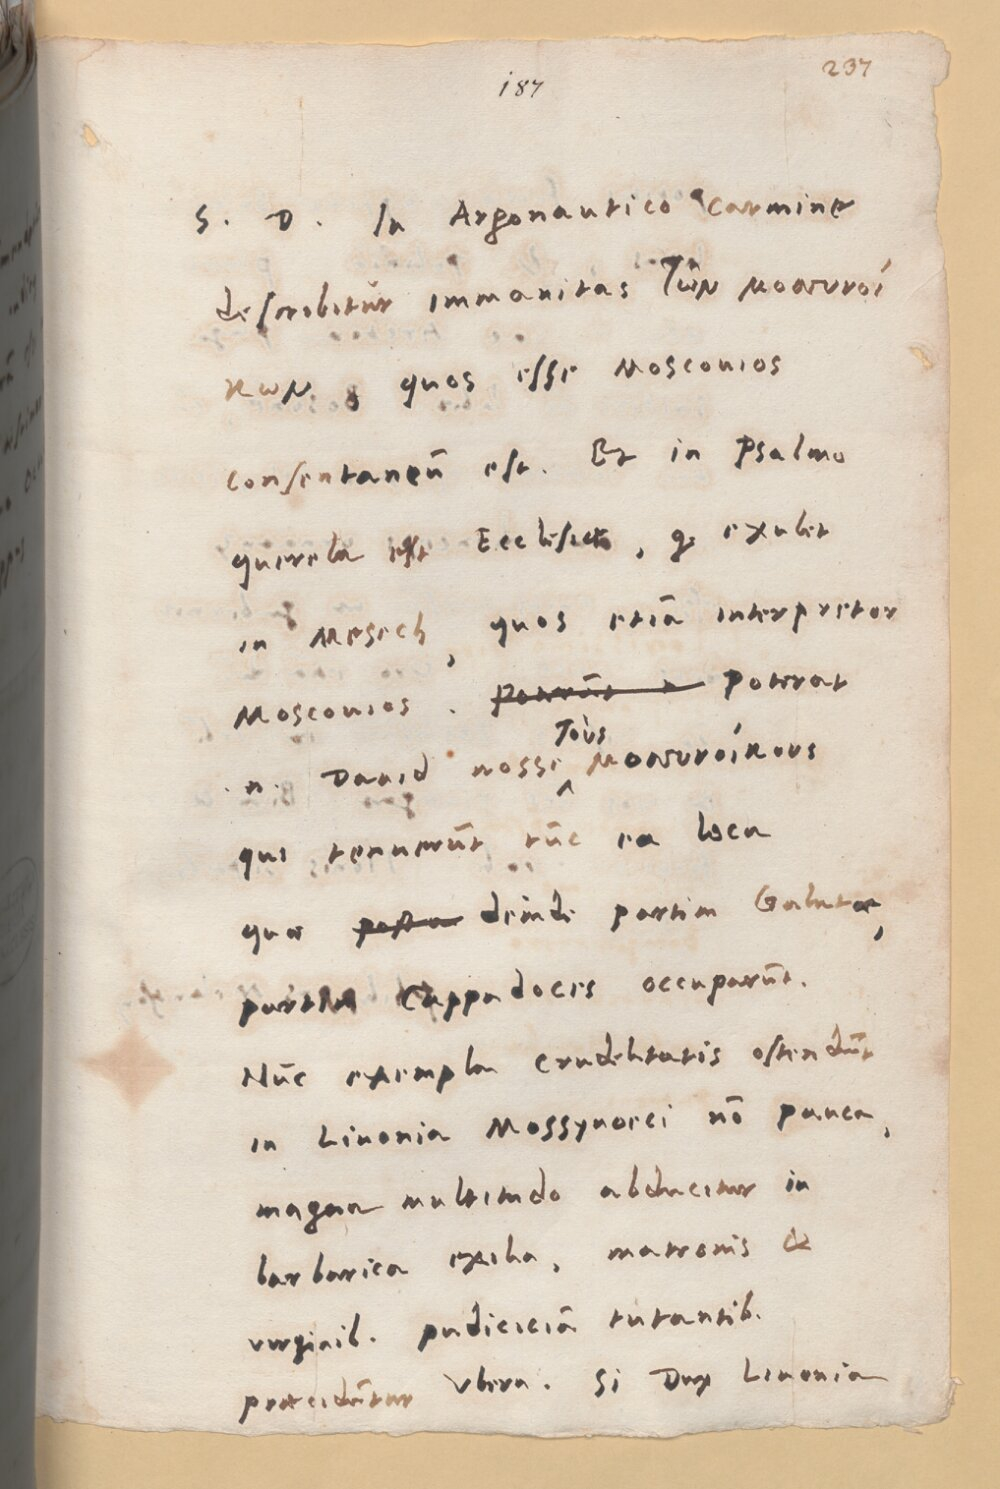 187
237
S. D. In Argonautico Carmine
describitur immanitas τῶν μοσυνοί
κων, quos esse Mosconios
consentaneū est. Et in Psalmo
querela est Ecclesiæ, q exulet
in Mesech, quos etiā interpretor
Mosconios. Poterat
.n. David nosse τοὺς μοσυνοίκους
qui tenuerūt tūc ea loca
quæ deinde partim Galatæ,
partim Cappadoces occuparūt.
Nūc exempla crudelitatis ostendūt
in Livonia Mossynoeci nō pauca,
magna multitudo abducitur in
barbarica exilia, matronis &
virginib. pudiciciā tutantib.
præcidūtur ubera. Si Dux Livoniæ